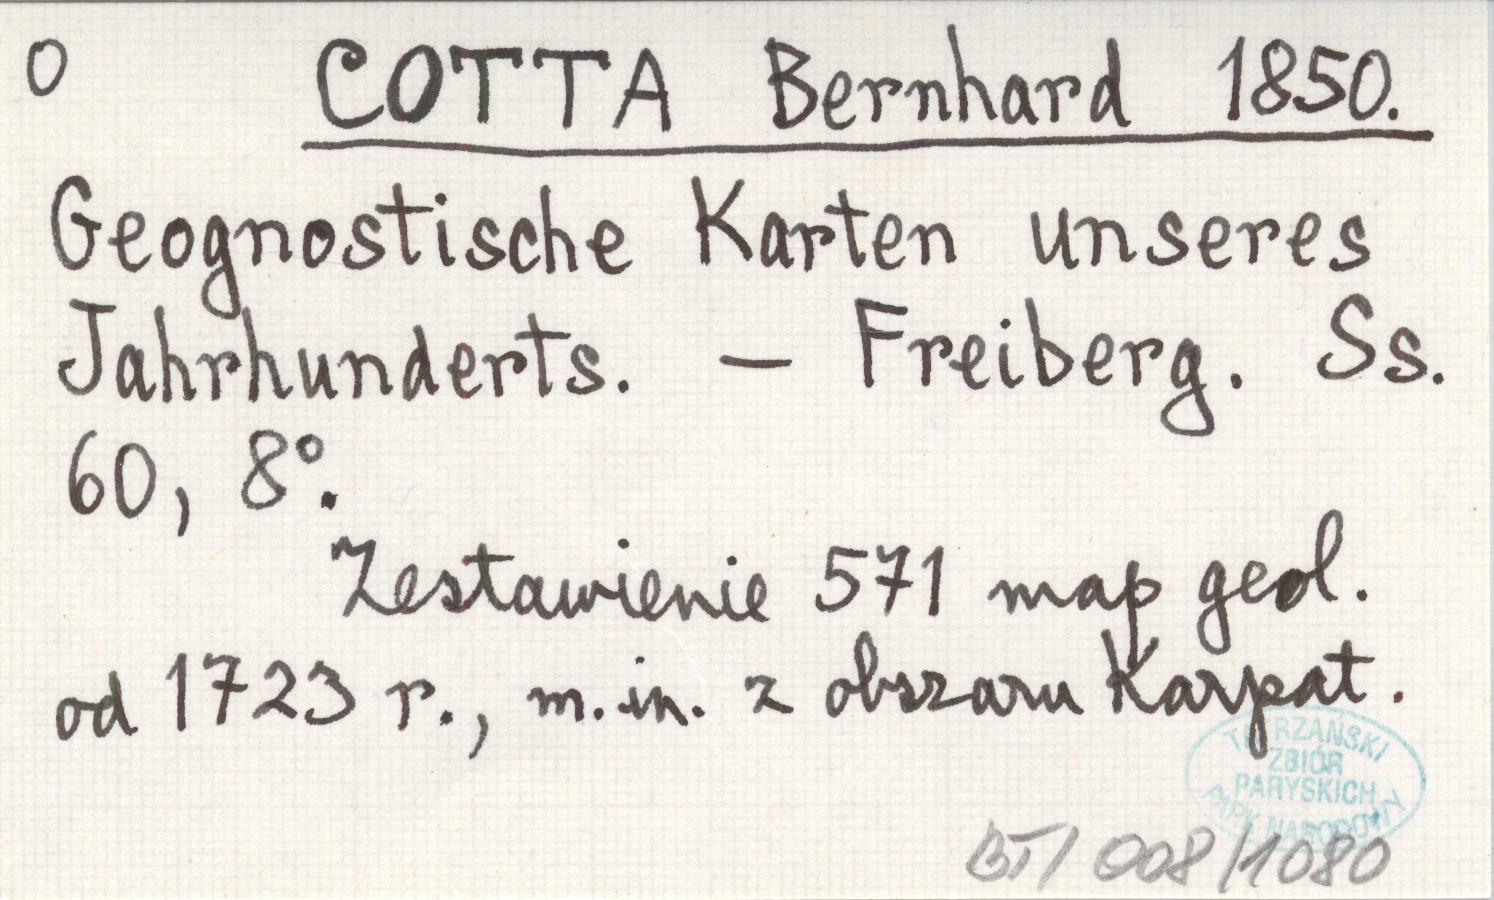 O COTTA Bernhard 1850.
Geognostische Karten unseres
Jahrhunderts. — Freiberg. Ss.
60, 8°.
Zestawienie 571 map geol.
od 1723 r., m.in. z obszaru Karpat.
TATRZAŃSKI
ZBIÓR
PARYSKICH
PARK NARODOWY
BT/008/1080